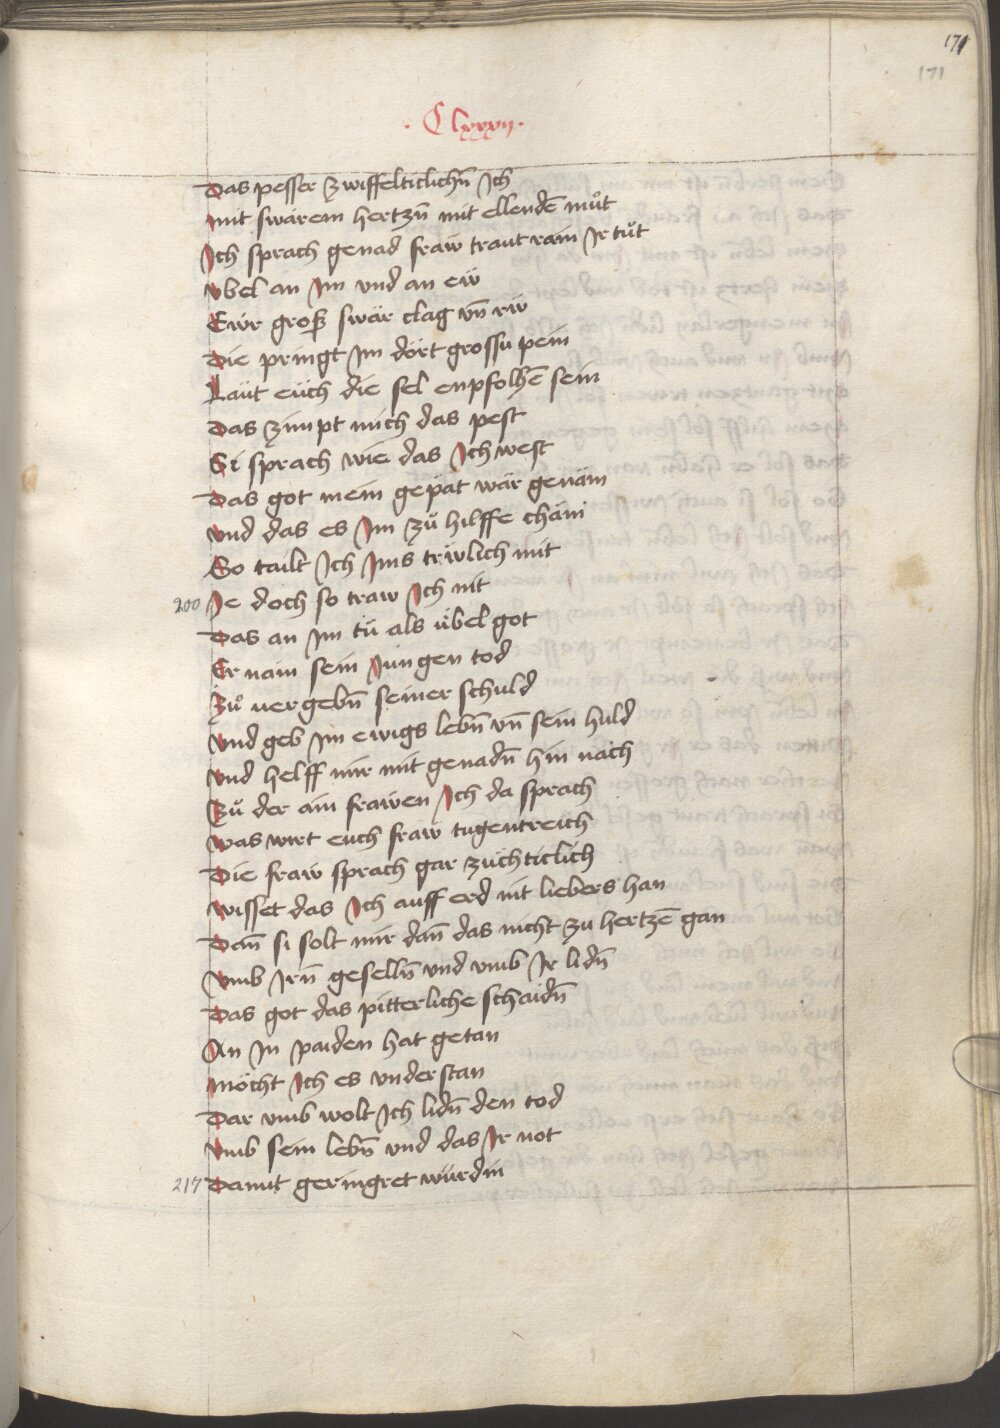 171
171
· Clxxxij ·
Das pesser zwiffelticlichn̄ Ich
mit swärem hertzn̄ mit ellendē můt
Ich sprach genad fraw traut rain Ir tůt
vbel an Im vnd an eẅ
Ewr groß swär clag vn̄ rẅ
Die pringt Im dört grossū pein
Laüt eüch die sel enpfolhē sein
Das zimpt mich das pest
Si sprach wie das Ich west
Das got mein gepät wär genäm
vnd das es Im zů hilffe chäm
So tailt Ich Ims träwlich mit
200 Je doch so traw Ich nit
Das an Im tü als übel got
Er nam sein Jungen tod
Zů uergebn̄ seiner schuld
vnd geb Im ewigs lebn̄ vn̄ sein huld
vnd helff mir mit genadn̄ hin nach
Zů der ain frawen Ich da sprach
was wirt euch fraw tugentreich
Die fraw sprach gar züchticlich
wisset das Ich auff erd nit liebers han
Dan̄ si solt mir dan̄ das nicht zu hertzē gan
vmb Irn̄ geselln̄ vnd vmb Ir lidn̄
Das got das pitterliche schaidn̄
An In paiden hat getan
möcht Ich es vnderstan
Dar vmb wolt Ich lidn̄ den tod
vmb sein lebn̄ vnd das Ir not
217 Damit geringret würdin